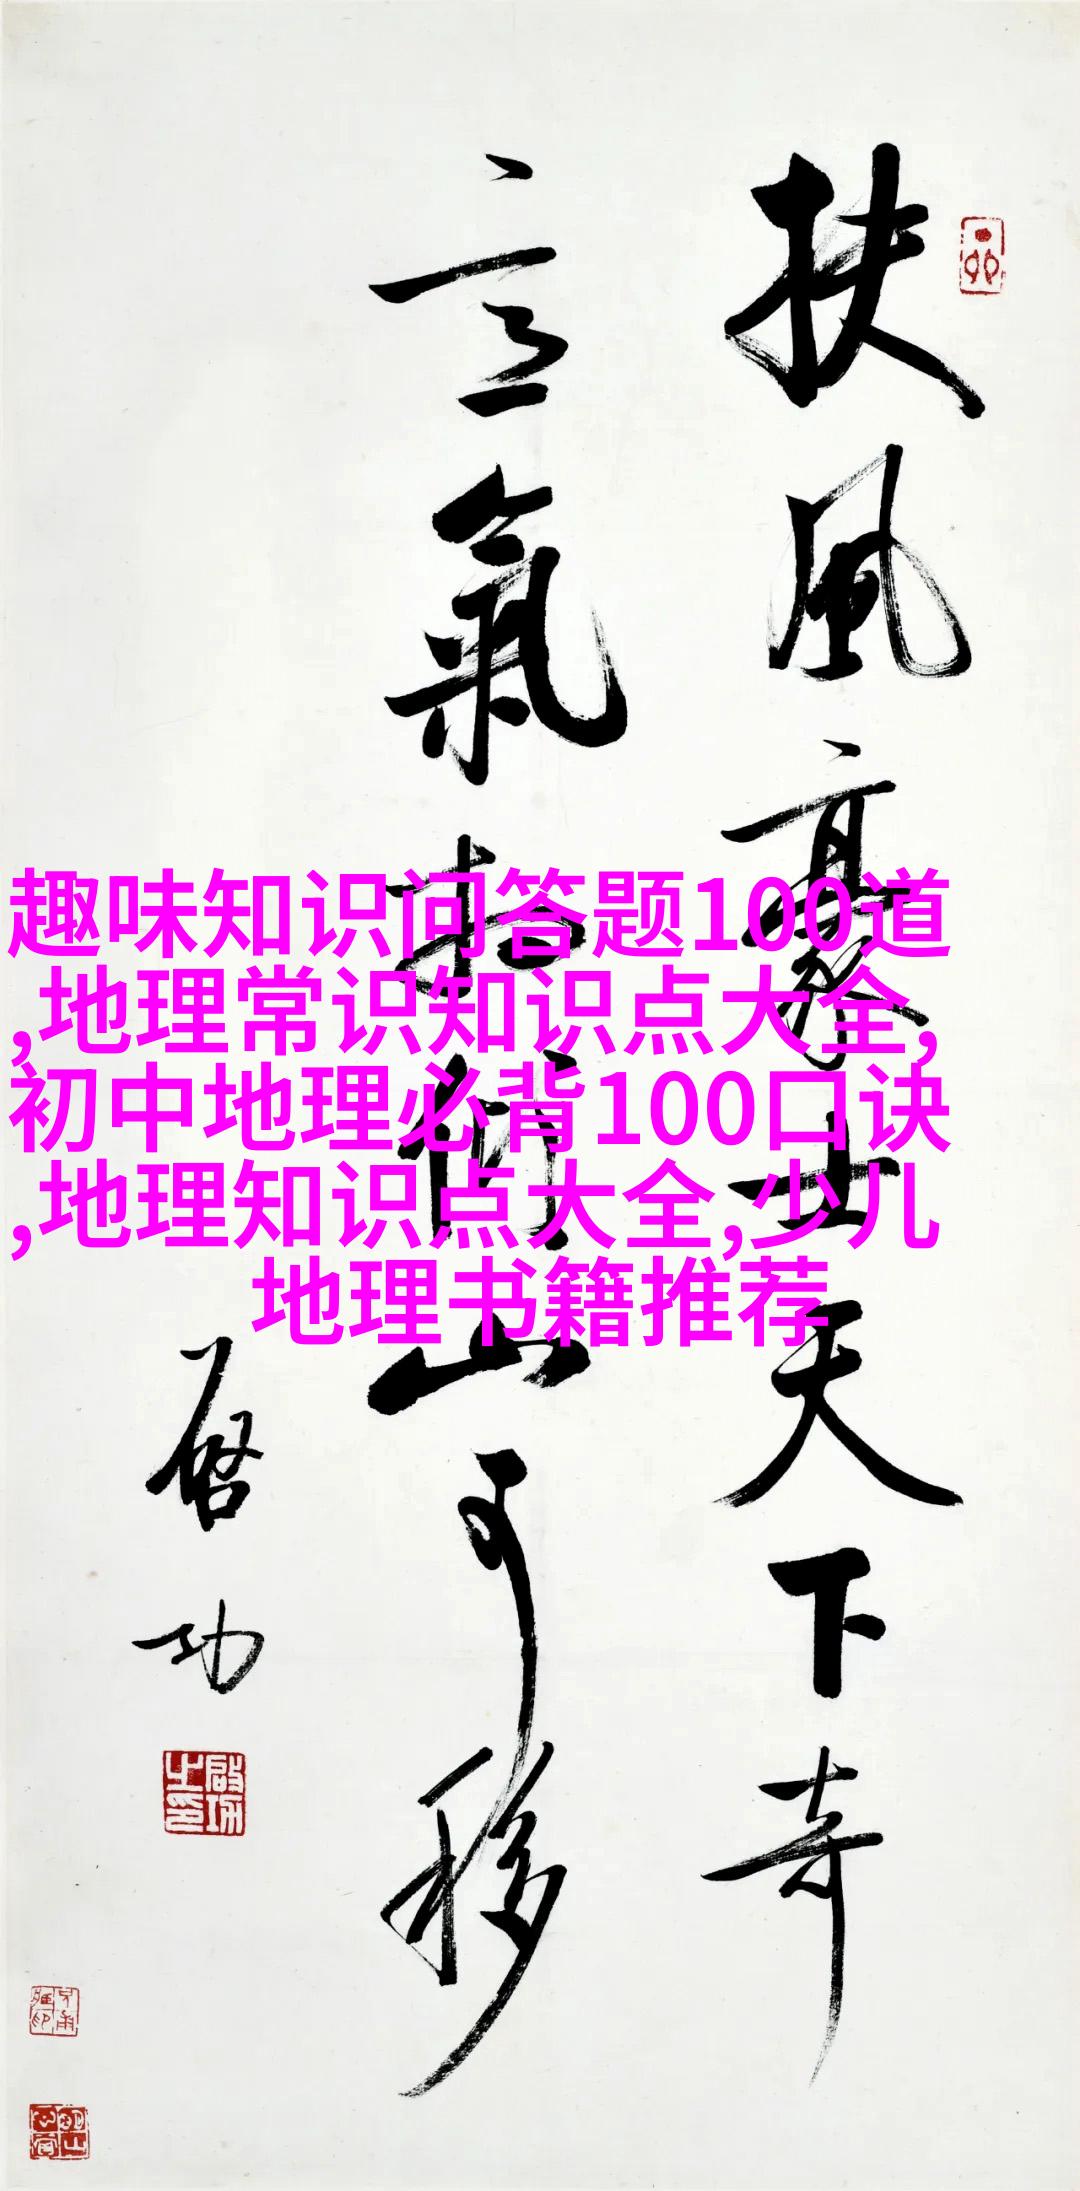 扶風豪士天下奇
意氣相傾山可移
启功
啟功之印
趣味知识问答题100道
,地理常识知识点大全,
初中地理必背100口诀
,地理知识点大全,少儿
地理书籍推荐